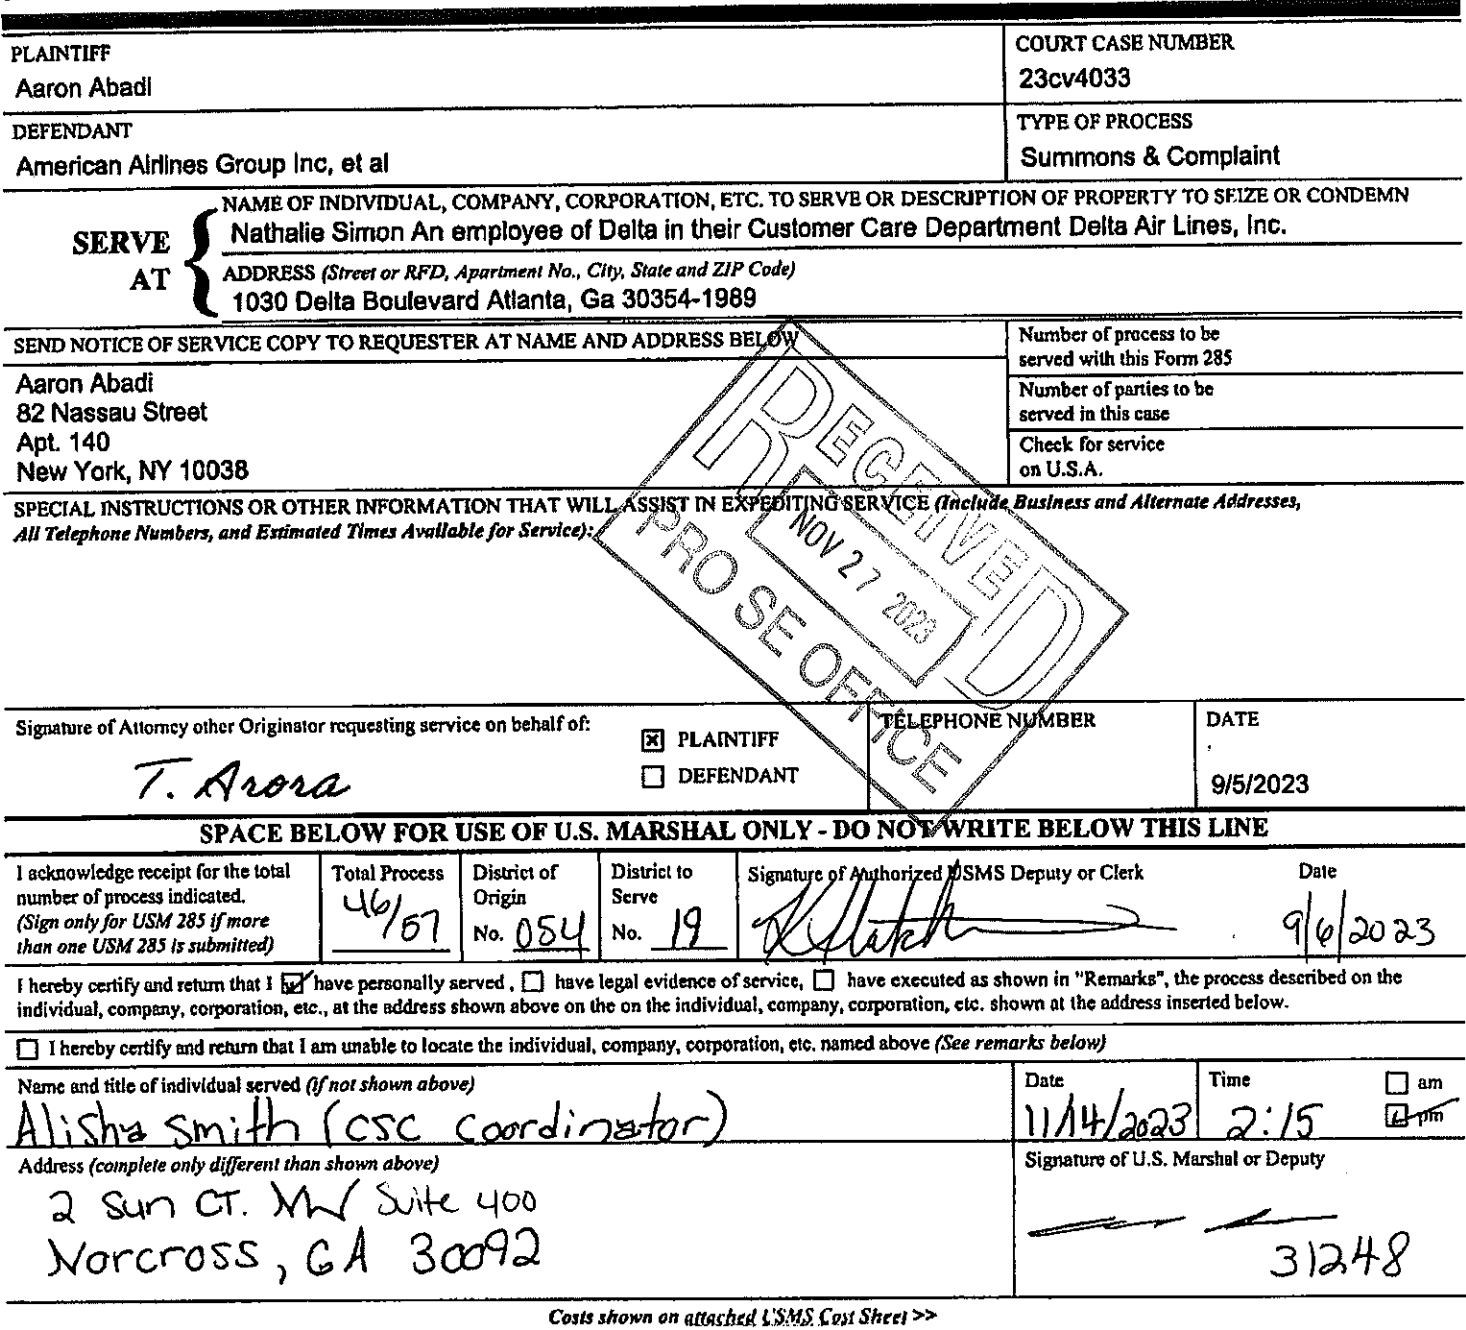 PLAINTIFF
Aaron Abadi
COURT CASE NUMBER
23cv4033
DEFENDANT
American Airlines Group Inc, et al
TYPE OF PROCESS
Summons & Complaint
SERVE
AT
NAME OF INDIVIDUAL, COMPANY, CORPORATION, ETC. TO SERVE OR DESCRIPTION OF PROPERTY TO SEIZE OR CONDEMN
Nathalie Simon An employee of Delta in their Customer Care Department Delta Air Lines, Inc.
ADDRESS (Street or RFD, Apartment No., City, State and ZIP Code)
1030 Delta Boulevard Atlanta, Ga 30354-1989
SEND NOTICE OF SERVICE COPY TO REQUESTER AT NAME AND ADDRESS BELOW
Aaron Abadi
82 Nassau Street
Apt. 140
New York, NY 10038
Number of process to be
served with this Form 285
Number of parties to be
served in this case
Check for service
on U.S.A.
SPECIAL INSTRUCTIONS OR OTHER INFORMATION THAT WILL ASSIST IN EXPEDITING SERVICE (Include Business and Alternate Addresses,
All Telephone Numbers, and Estimated Times Available for Service):
RECEIVED
NOV 27 2023
PRO SE OFFICE
Signature of Attorney other Originator requesting service on behalf of:
T. Arora
PLAINTIFF
DEFENDANT
TELEPHONE NUMBER
DATE
9/5/2023
SPACE BELOW FOR USE OF U.S. MARSHAL ONLY - DO NOT WRITE BELOW THIS LINE
I acknowledge receipt for the total
number of process indicated.
(Sign only for USM 285 if more
than one USM 285 is submitted)
Total Process
46/57
District of
Origin
No. 054
District to
Serve
No. 19
Signature of Authorized USMS Deputy or Clerk
Date
9/6/2023
I hereby certify and return that I have personally served, have legal evidence of service, have executed as shown in "Remarks", the process described on the
individual, company, corporation, etc., at the address shown above on the on the individual, company, corporation, etc. shown at the address inserted below.
I hereby certify and return that I am unable to locate the individual, company, corporation, etc. named above (See remarks below)
Name and title of individual served (if not shown above)
Alisha Smith (CSC Coordinator)
Date
11/14/2023
Time
2:15
am
pm
Address (complete only different than shown above)
2 Sun CT. NW Suite 400
Norcross, GA 30092
Signature of U.S. Marshal or Deputy
31248
Costs shown on attached USMS Cost Sheet >>